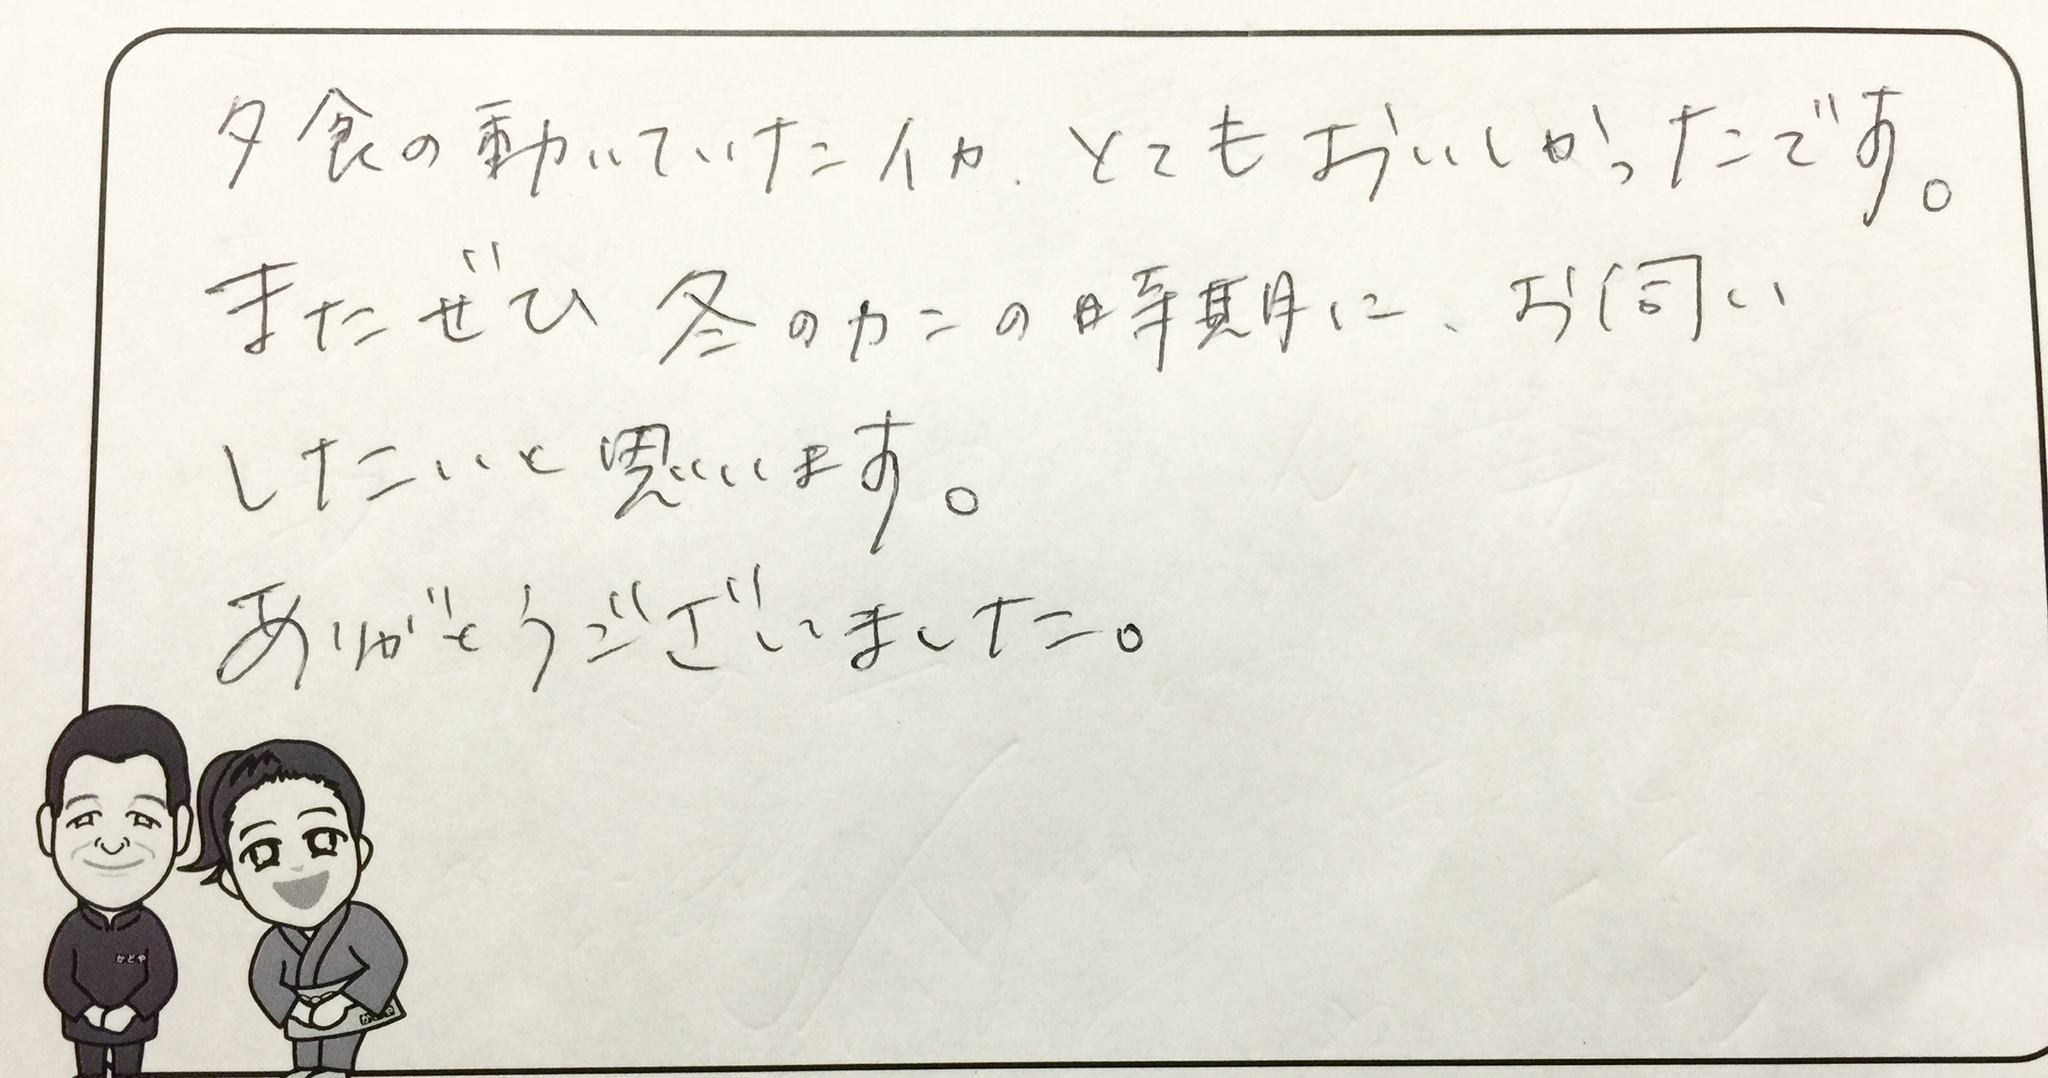 夕食の動いていたイカ、とてもおいしかったです。
またぜひ冬のカニの時期に、お伺い
したいと思います。
ありがとうございました。
かどや